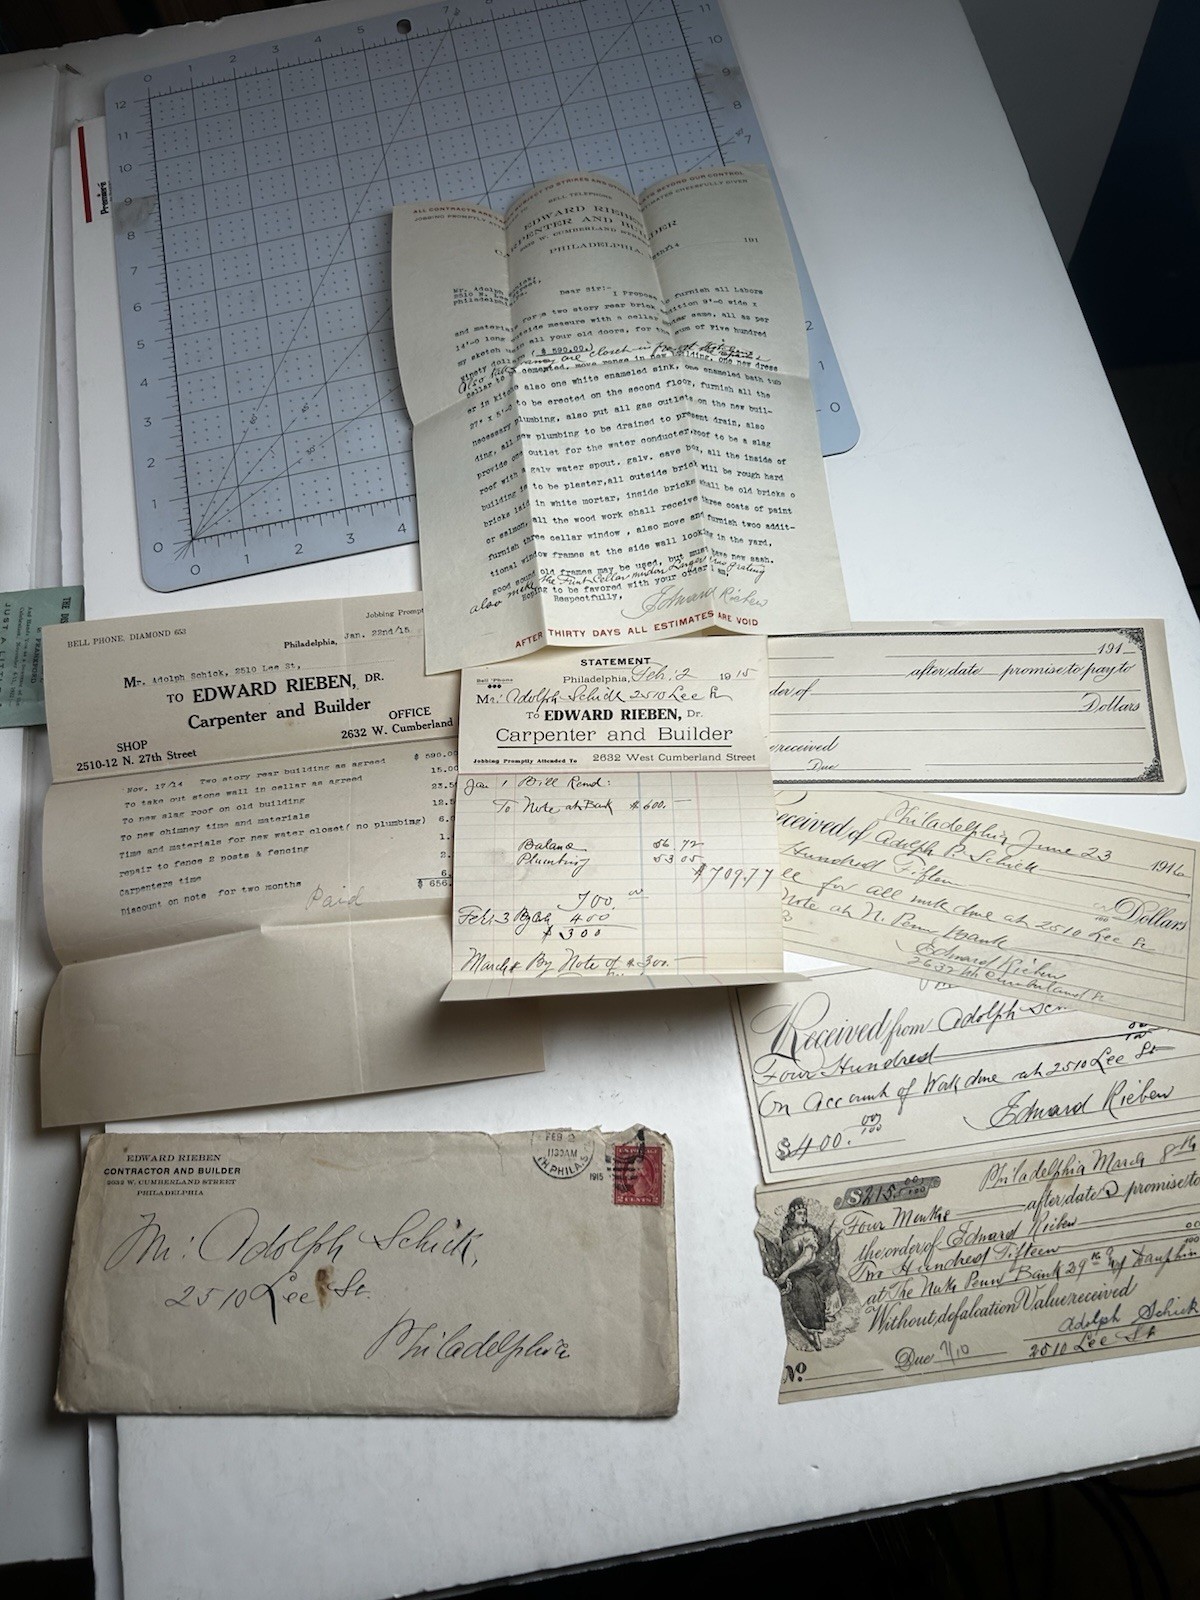 ALL CONTRACTS ARE SUBJECT TO STRIKES AND BEYOND OUR CONTROL
JOBBING PROMPTLY BELL TELEPHONE CHEERFULLY GIVEN
EDWARD RIEBEN
CARPENTER AND BUILDER
2632 W. CUMBERLAND STREET
PHILADELPHIA, 191
Mr. Adolph
Philadelphia
Dear Sir:- I Propose furnish all Labore
and material for a two story rear brick addition 9'-0 wide x
14'-0 long outside measure with a cellar under same, all as per
my sketch all your old doors, for the sum of Five hundred
Ninety dollars ( $ 590.00.)
cellar to cemented, move range in new building, one new dress
er in kitchen also one white enameled sink, one enameled bath tub
to be erected on the second floor, furnish all the
necessary plumbing, also put all gas outlets on the new buil-
ding, all new plumbing to be drained to present drain, also
provide one outlet for the water conductor, roof to be a slag
roof with a galv water spout. galv. eave box, all the inside of
building is to be plaster, all outside brick will be rough hard
bricks laid in white mortar, inside bricks shall be old bricks o
or salmon, all the wood work shall receive three coats of paint
furnish three cellar window , also move and furnish two addit-
tional window frames at the side wall looking in the yard,
good sound old frames may be used, but must have new sash.
also make the Front Cellar window Larger grating
Hoping to be favored with your order I am,
Respectfully,
Edward Rieben
AFTER THIRTY DAYS ALL ESTIMATES ARE VOID
BELL PHONE, DIAMOND 653
Jobbing Prompt
Philadelphia, Jan. 22nd/15
Mr. Adolph Schick, 2510 Lee St,
TO EDWARD RIEBEN, DR.
Carpenter and Builder
SHOP OFFICE
2510-12 N. 27th Street 2632 W. Cumberland
Nov. 17/14 Two story rear building as agreed $ 590.00
To take out stone wall in cellar as agreed 15.00
To new slag roof on old building 23.5
To new chimney time and materials 12.5
Time and materials for new water closet( no plumbing) 6.
repair to fence 2 posts & fencing 1.
Carpenters time 2.
Discount on note for two months 6.
$ 656.
Paid
STATEMENT
Bell Phone Philadelphia, Feb. 2 1915
Mr. Adolph Schick 2510 Lee St
To EDWARD RIEBEN, Dr.
Carpenter and Builder
Jobbing Promptly Attended To 2632 West Cumberland Street
Jan 1 Bill Rend:
To Note at Bank $600.—
Balance 56.72
Plumbing 53 05
$709.77
700.00
Feb. 3 By Cash 400
$300
March 8 By Note of $300.—
191
after date promise to pay to
der of
Dollars
received
Due
Philadelphia June 23 1916
Received of Adolph P. Schick
Hundred Fifteen
00/100 Dollars
for all work due at 2510 Lee St
Note at N. Penn Bank
Edward Rieben
2632 W Cumberland St
Received from Adolph
Four Hundred 00/100
On Account of Work due at 2510 Lee St
$400.00/100 Edward Rieben
$215.00/100 Philadelphia March 8th
Four Months after date I promise to
the order of Edward Rieben
Two Hundred Fifteen 00/100
at The North Penn Bank 29th & Dauphin
Without defalcation Value received
Adolph Schick
No Due 7/10 2510 Lee St
EDWARD RIEBEN
CONTRACTOR AND BUILDER
2632 W. CUMBERLAND STREET
PHILADELPHIA
FEB 3
11 30 AM
1915
PHILA.
2 CENTS 2
Mr. Adolph Schick,
2510 Lee St.
Philadelphia
Premiere
JUST A